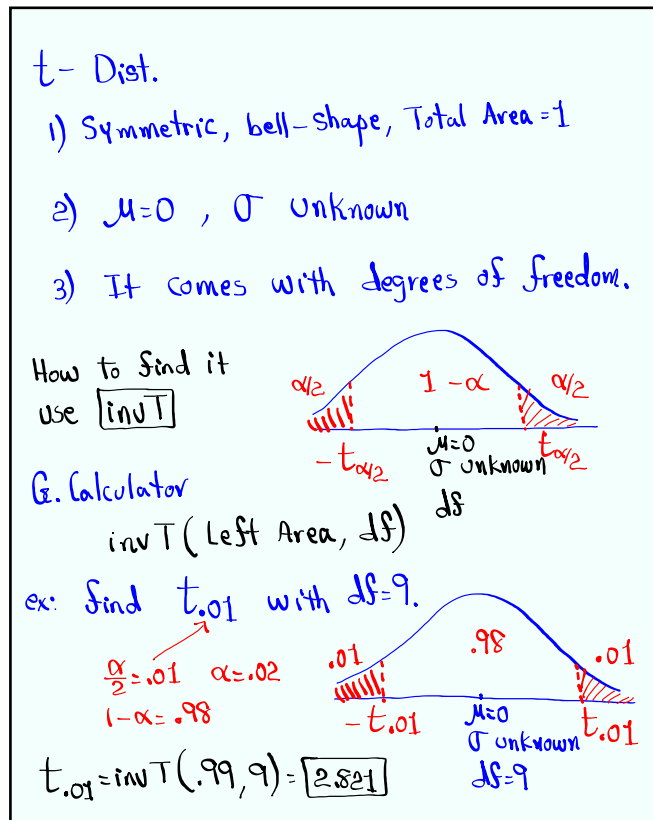 t- Dist.
1) Symmetric, bell-shape, Total Area=1
2) μ=0 , σ unknown
3) It comes with degrees of freedom.
How to find it
use invT
α/2 1-α α/2
-t α/2 μ=0 t α/2
σ unknown
df
G. Calculator
invT(Left Area, df)
ex: find t.01 with df=9.
α/2=.01 α=.02
1-α=.98
.01 .98 .01
-t.01 μ=0 t.01
σ unknown
df=9
t.01=invT(.99,9)=2.821